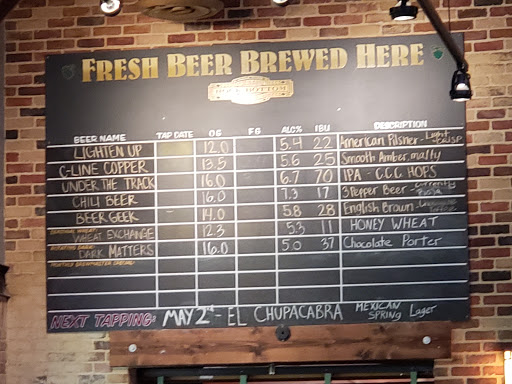 FRESH BEER BREWED HERE
ROCK BOTTOM
BEER NAME TAP DATE OG FG ALC% IBU DESCRIPTION
LIGHTEN UP 12.0 5.4 22 American Pilsner - Light & CRISP
C-LINE COPPER 13.5 5.6 25 Smooth Amber, malty
UNDER THE TRACK 16.0 6.7 70 IPA - C.C.C. HOPS
CHILI BEER 16.0 7.3 17 3 Pepper Beer -
BEER GEEK 14.0 5.8 28 English Brown -
ROTATING WHEAT:
WHEAT EXCHANGE 12.3 5.3 11 HONEY WHEAT
ROTATING DARK:
DARK MATTERS 16.0 5.0 37 Chocolate Porter
MONTHLY BREWMASTER SPECIAL:
NEXT TAPPING: MAY 2nd - EL CHUPACABRA MEXICAN SPRING Lager